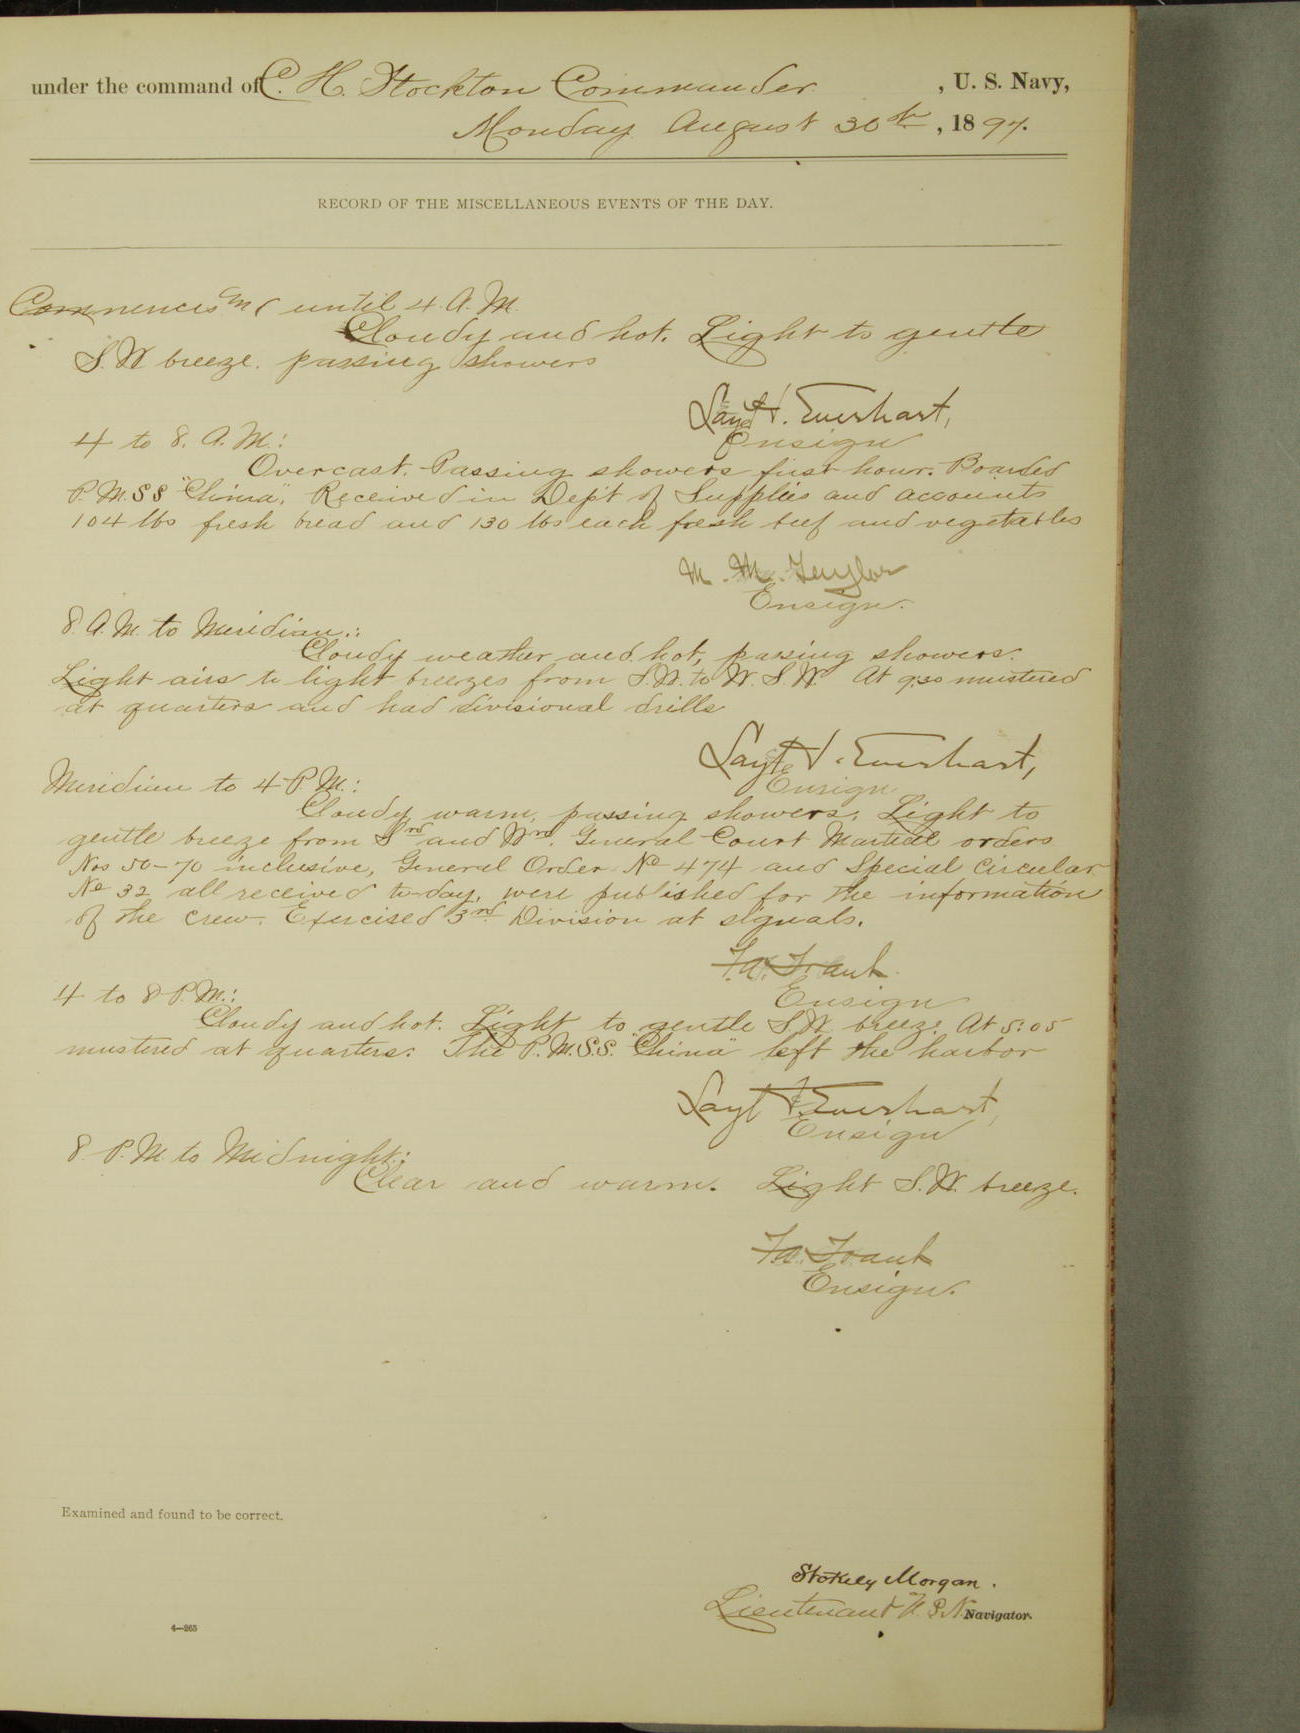 under the command of C. H. Stockton Commander , U. S. Navy,
Monday August 30th , 1897.
RECORD OF THE MISCELLANEOUS EVENTS OF THE DAY.
Commences and until 4 A.M.
Cloudy and hot. Light to gentle
S.W breeze. passing showers
Lay H. Everhart,
Ensign
4 to 8. A.M.:
Overcast. Passing showers first hour. Boarded
P.M.SS "China". Received in Dep't of Supplies and accounts
104 lbs fresh bread and 130 lbs each fresh beef and vegetables
M. M. Taylor
Ensign.
8. A.M. to Meridian.:
Cloudy weather and hot, passing showers.
Light airs to light breezes from S.W. to W.S.W. At 9:30 mustered
at quarters and had divisional drills
Lay H. Everhart,
Ensign
Meridian to 4 P.M.:
Cloudy warm, passing showers. Light to
gentle breeze from Srd and Wrd. General Court Martial orders
Nos 50-70 inclusive, General Order No 474 and Special Circular
No 32 all received to-day, were published for the information
of the crew. Exercised 3rd Division at signals.
Ensign
4 to 8 P.M.:
Cloudy and hot. Light to gentle S.W breeze. At 5:05
mustered at quarters. The P.M.S.S. "China" left the harbor
Lay H. Everhart,
Ensign
8. P.M. to Midnight.:
Clear and warm. Light S.W. breeze.
Ensign.
Examined and found to be correct.
Stokely Morgan.
Lieutenant U.S.N. Navigator.
4—265